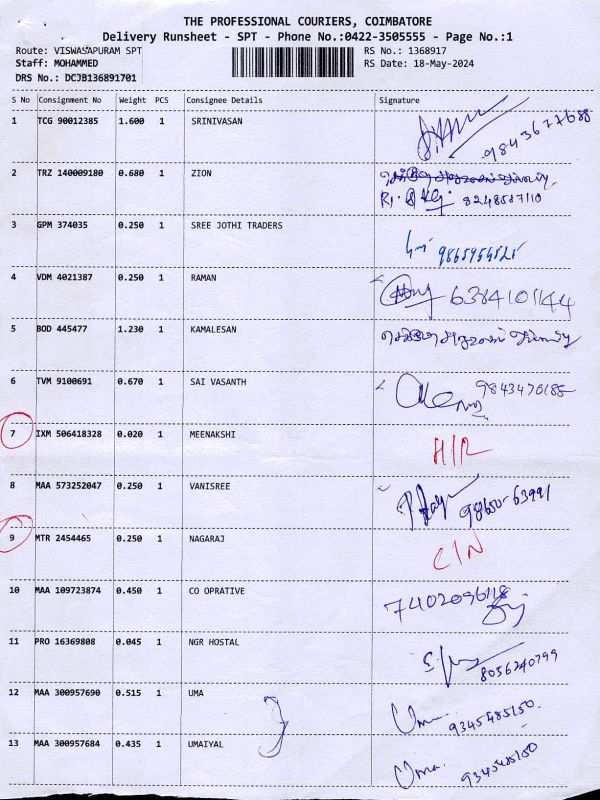 THE PROFESSIONAL COURIERS, COIMBATORE
Delivery Runsheet - SPT - Phone No.:0422-3505555 - Page No.:1
Route: VISWASAPURAM SPT RS No.: 1368917
Staff: MOHAMMED RS Date: 18-May-2024
DRS No.: DCJB136891701
S No Consignment No Weight PCS Consignee Details Signature
1 TCG 90012385 1.600 1 SRINIVASAN 9843677688
2 TRZ 140009180 0.680 1 ZION
8248587110
3 GPM 374035 0.250 1 SREE JOTHI TRADERS
4 VDM 4021387 0.250 1 RAMAN 6384101144
5 BOD 445477 1.230 1 KAMALESAN
6 TVM 9100691 0.670 1 SAI VASANTH 9843470188
7 IXM 506418328 0.020 1 MEENAKSHI H/R
8 MAA 573252047 0.250 1 VANISREE 98650-63991
9 MTR 2454465 0.250 1 NAGARAJ C/N
10 MAA 109723874 0.450 1 CO OPRATIVE 7402096118
11 PRO 16369808 0.045 1 NGR HOSTAL 8056240799
12 MAA 300957690 0.515 1 UMA Uma 9345485150
13 MAA 300957684 0.435 1 UMAIYAL Uma. 9345485150